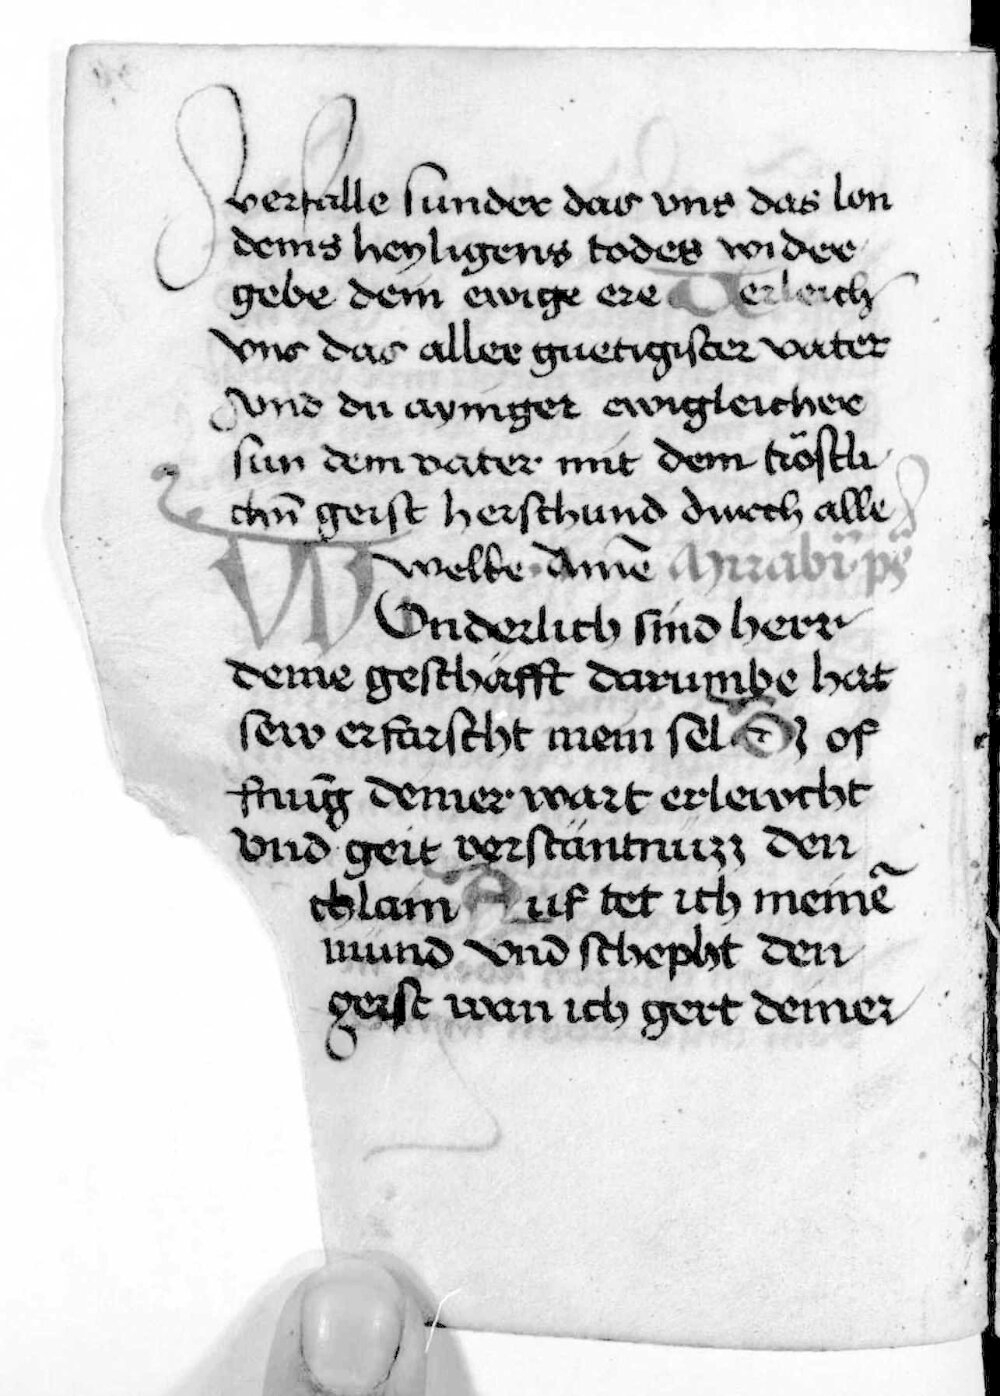 verfalle sunder das vns das lon
deins heyligens todes wider
gebe dein ewige ere Verleich
vns das aller guetigister vater
vnd du ayniger ewigleicher
sun dem vater mit dem tröstli
chn̄ geist herschund durch alle
welke Amē Mirabil ps
Wonderlich sind herr
deine geschäfft darumbe hat
sew erfarscht mein sel Dy of
fnūg deiner wart erlewcht
vnd geit verstäntnüzz den
chlain Auf tet ich meinē
mund vnd schepht den
geist wan ich gert deiner